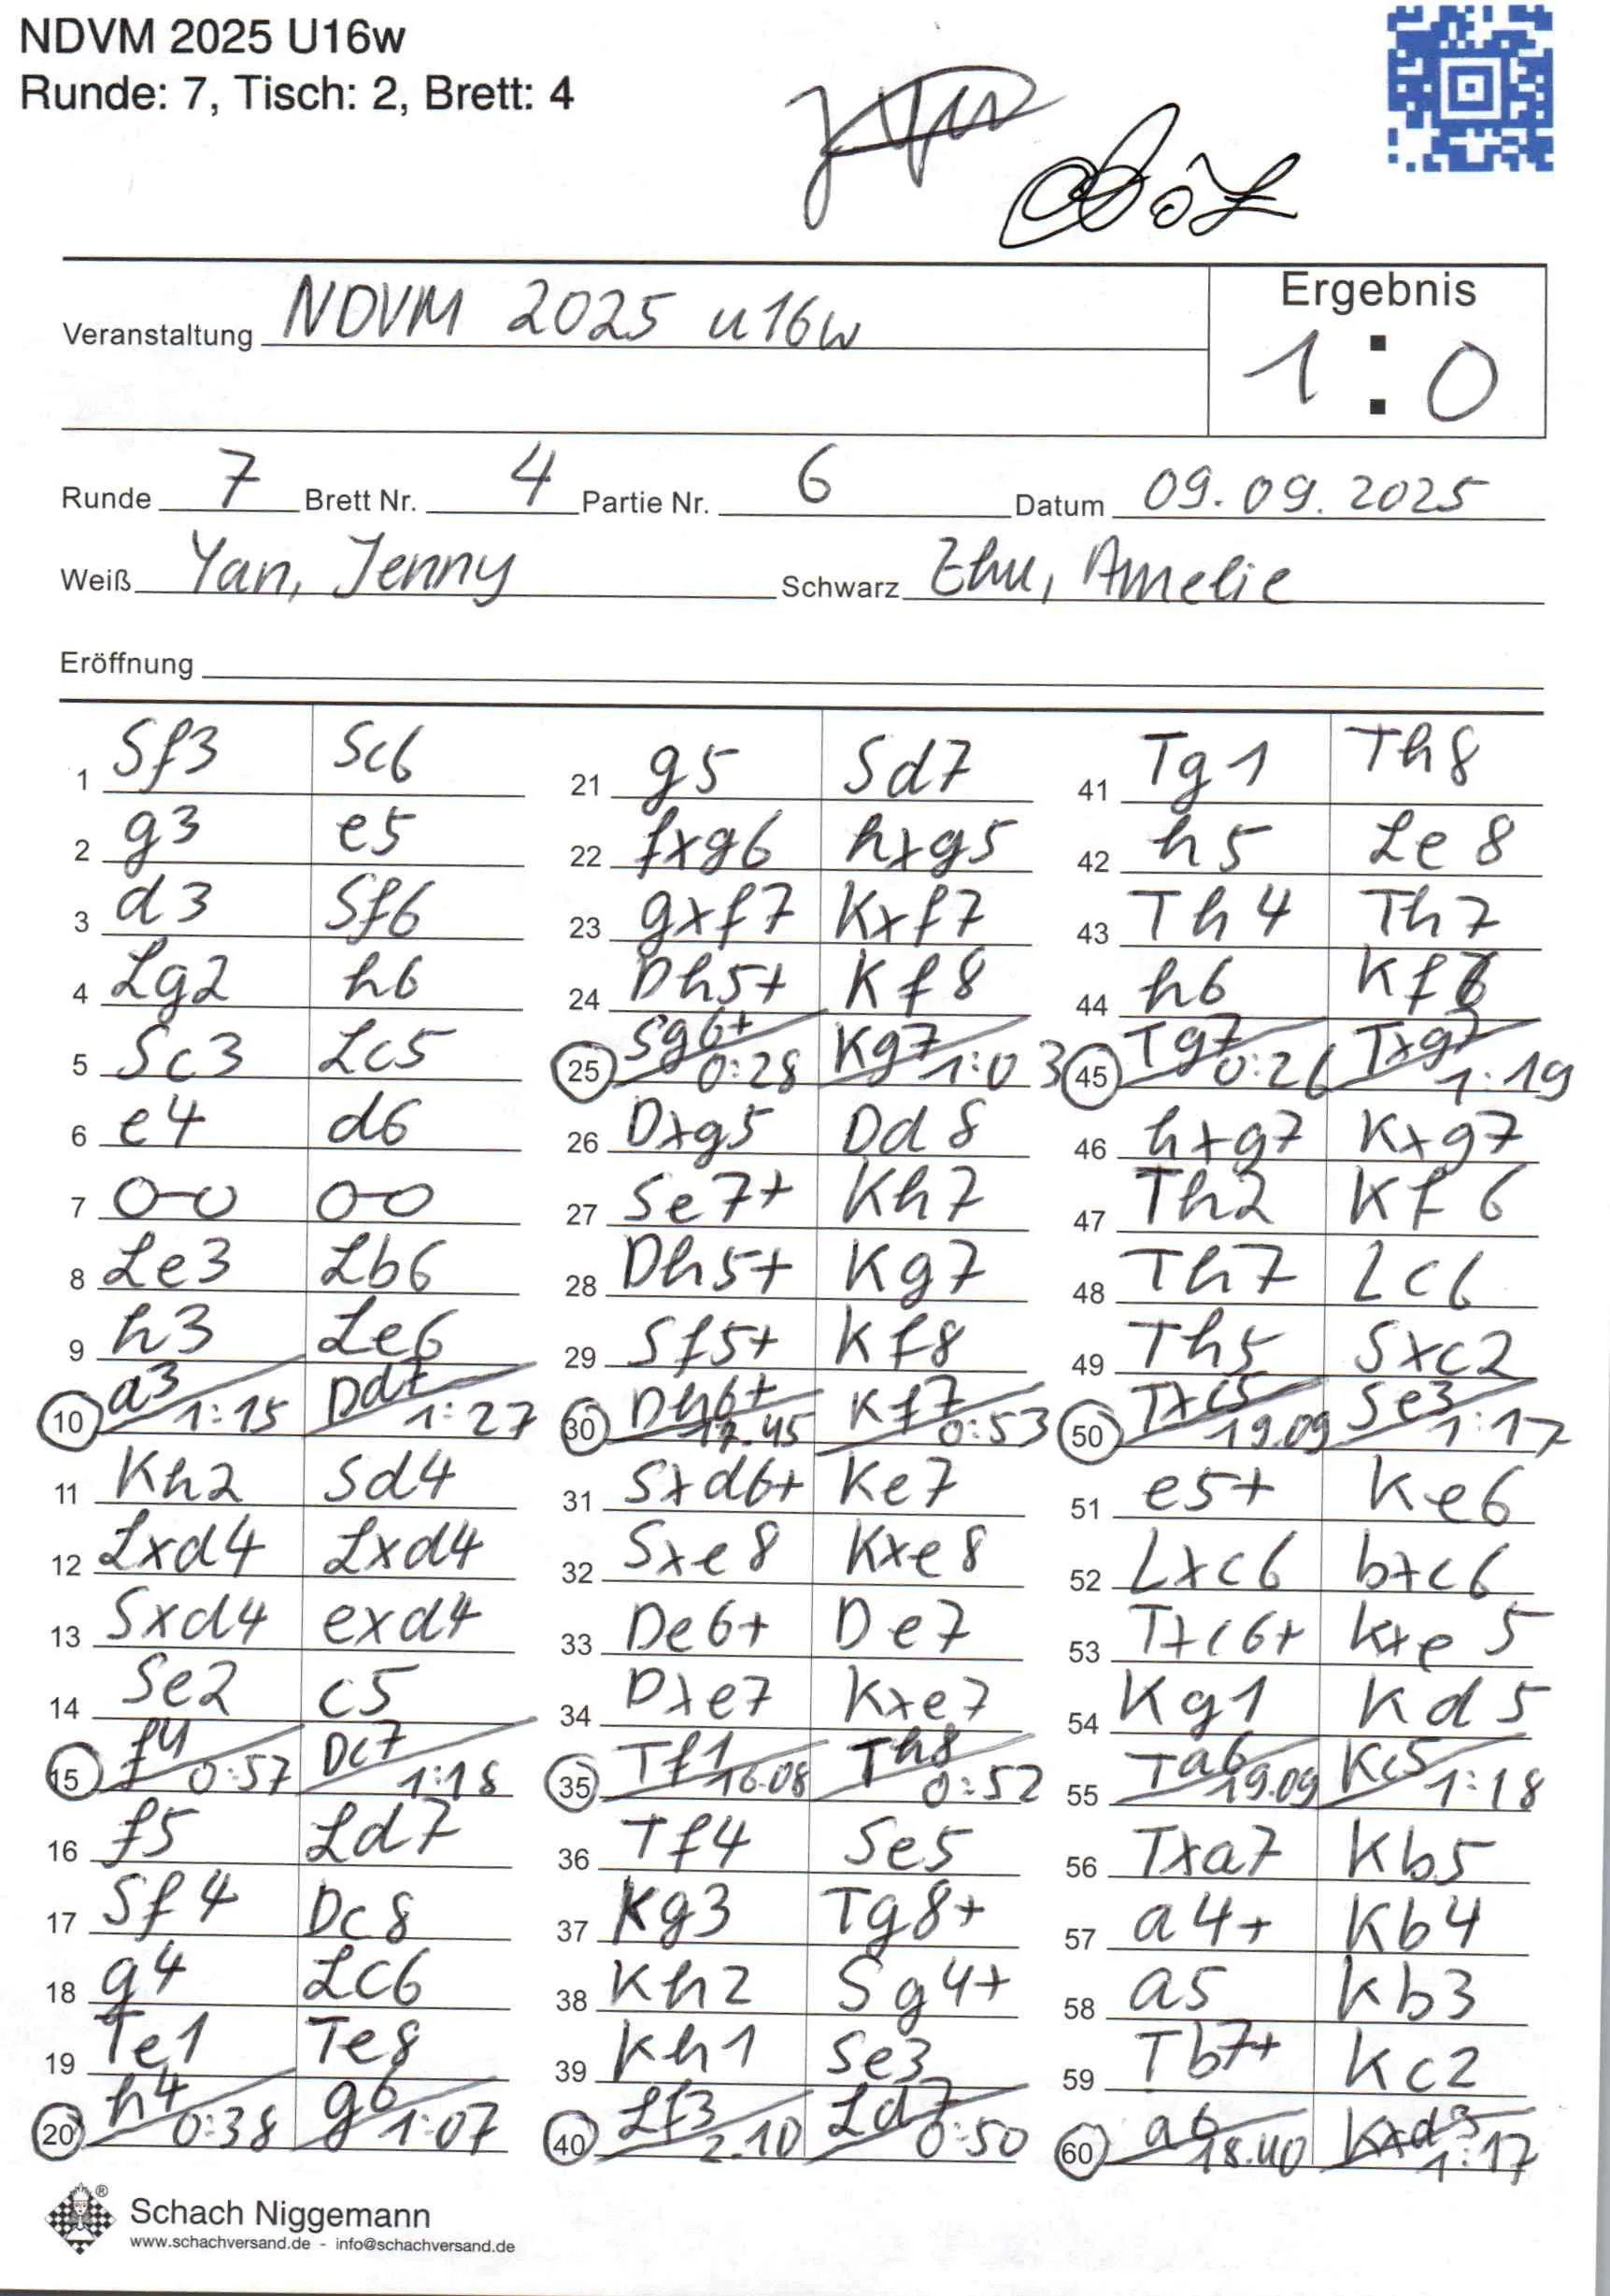 NDVM 2025 U16w
Runde: 7, Tisch: 2, Brett: 4
Veranstaltung NDVM 2025 u16w
Ergebnis
1 : 0
Runde 7 Brett Nr. 4 Partie Nr. 6 Datum 09.09.2025
Weiß Yan, Jenny Schwarz Zhu, Amelie
Eröffnung
1 Sf3 Sc6
2 g3 e5
3 d3 Sf6
4 Lg2 h6
5 Sc3 Lc5
6 e4 d6
7 0-0 0-0
8 Le3 Lb6
9 h3 Le6
10 a3 1:15 Dd7 1:27
11 Kh2 Sd4
12 Lxd4 Lxd4
13 Sxd4 exd4
14 Se2 c5
15 f4 0:57 Dc7 1:18
16 f5 Ld7
17 Sf4 Dc8
18 g4 Lc6
19 Te1 Te8
20 h4 0:38 g6 1:07
21 g5 Sd7
22 fxg6 hxg5
23 gxf7 Kxf7
24 Dh5+ Kf8
25 Sg6+ 0:28 Kg7 1:03
26 Dxg5 Dd8
27 Se7+ Kh7
28 Dh5+ Kg7
29 Sf5+ Kf8
30 Dh6+ 17.45 Kf7 0:53
31 Sxd6+ Ke7
32 Sxe8 Kxe8
33 De6+ De7
34 Dxe7 Kxe7
35 Tf1 16.08 Th8 0:52
36 Tf4 Se5
37 Kg3 Tg8+
38 Kh2 Sg4+
39 Kh1 Se3
40 Lf3 2.10 Ld7 0:50
41 Tg1 Th8
42 h5 Le8
43 Th4 Th7
44 h6 Kf6
45 Tg7 0:26 Txg7 1:19
46 hxg7 Kxg7
47 Th2 Kf6
48 Th7 Lc6
49 Th5 Sxc2
50 Txc5 19.09 Se3 1:17
51 e5+ Ke6
52 Lxc6 bxc6
53 Txc6+ Kxe5
54 Kg1 Kd5
55 Ta6 19.09 Kc5 1:18
56 Txa7 Kb5
57 a4+ Kb4
58 a5 Kb3
59 Tb7+ Kc2
60 a6 18.40 Kxd3 1:17
Schach Niggemann
www.schachversand.de - info@schachversand.de